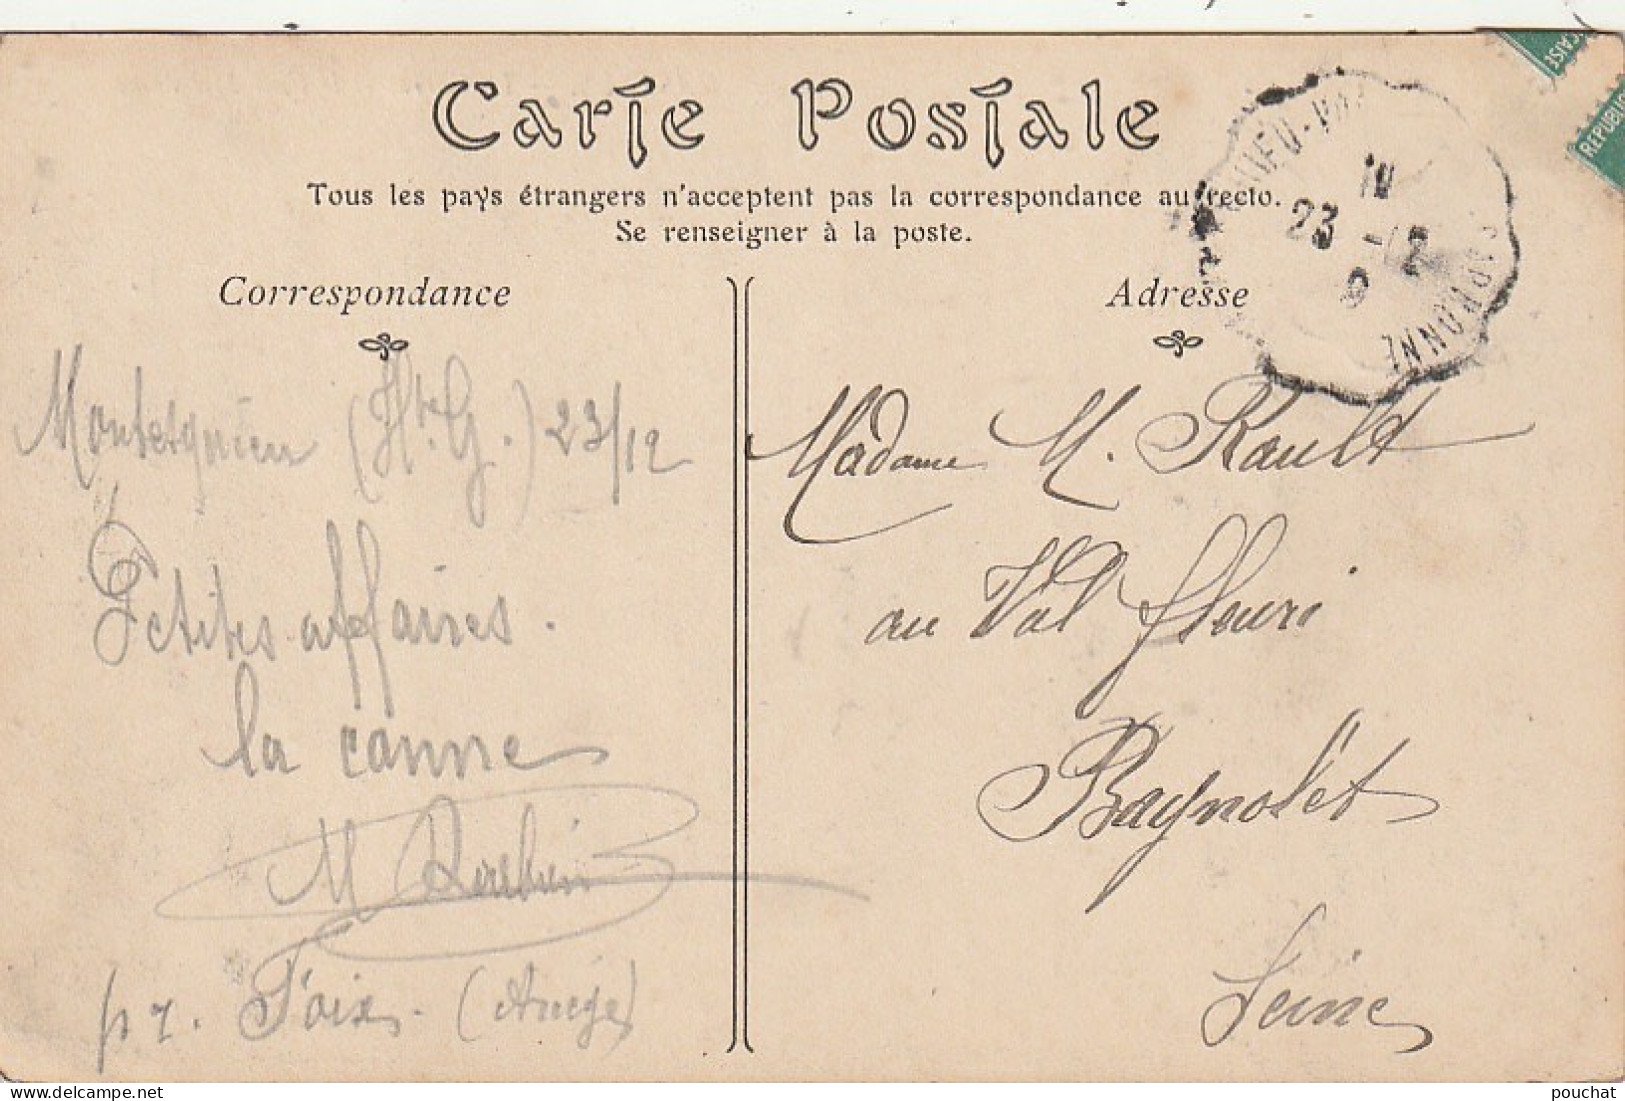 Carte Postale
Tous les pays étrangers n'acceptent pas la correspondance au recto.
Se renseigner à la poste.
Correspondance
Adresse
CARBONNE
23 -12
9
CAISE
REPUBLIQ
Montesquieu (Hte G.) 23/12
Petites affaires.
la canne
M
pr. Foix. (Ariège)
Madame M. Rault
au Val fleuri
Bagnolet
Seine
delcampe.net
pouchat